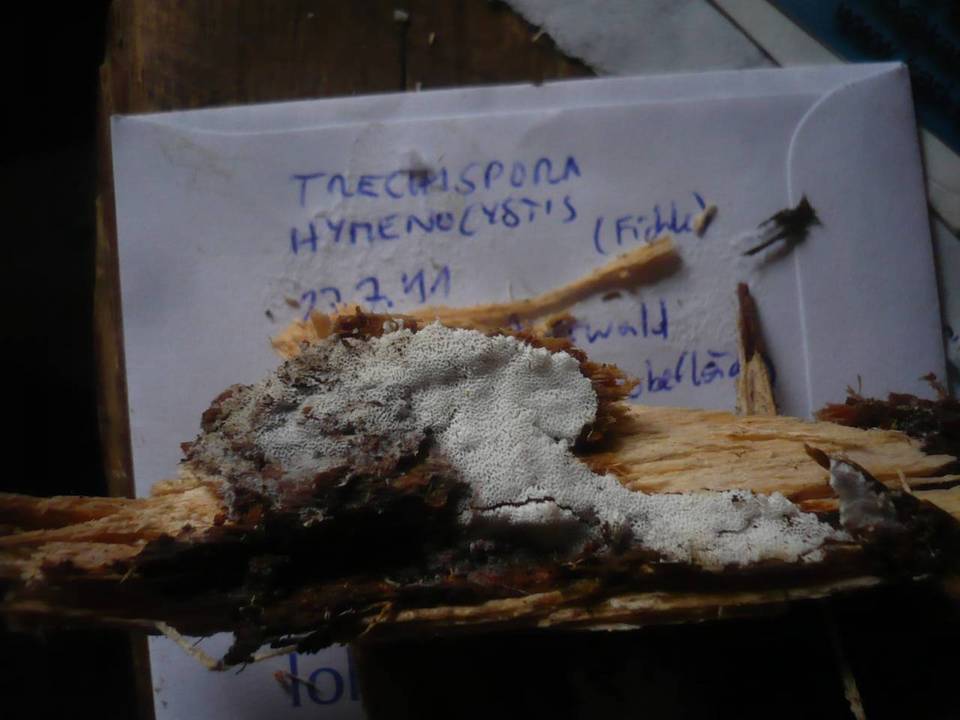 TRECHISPORA
HYMENOCYSTIS
(Fichte)
27.7.11
wald